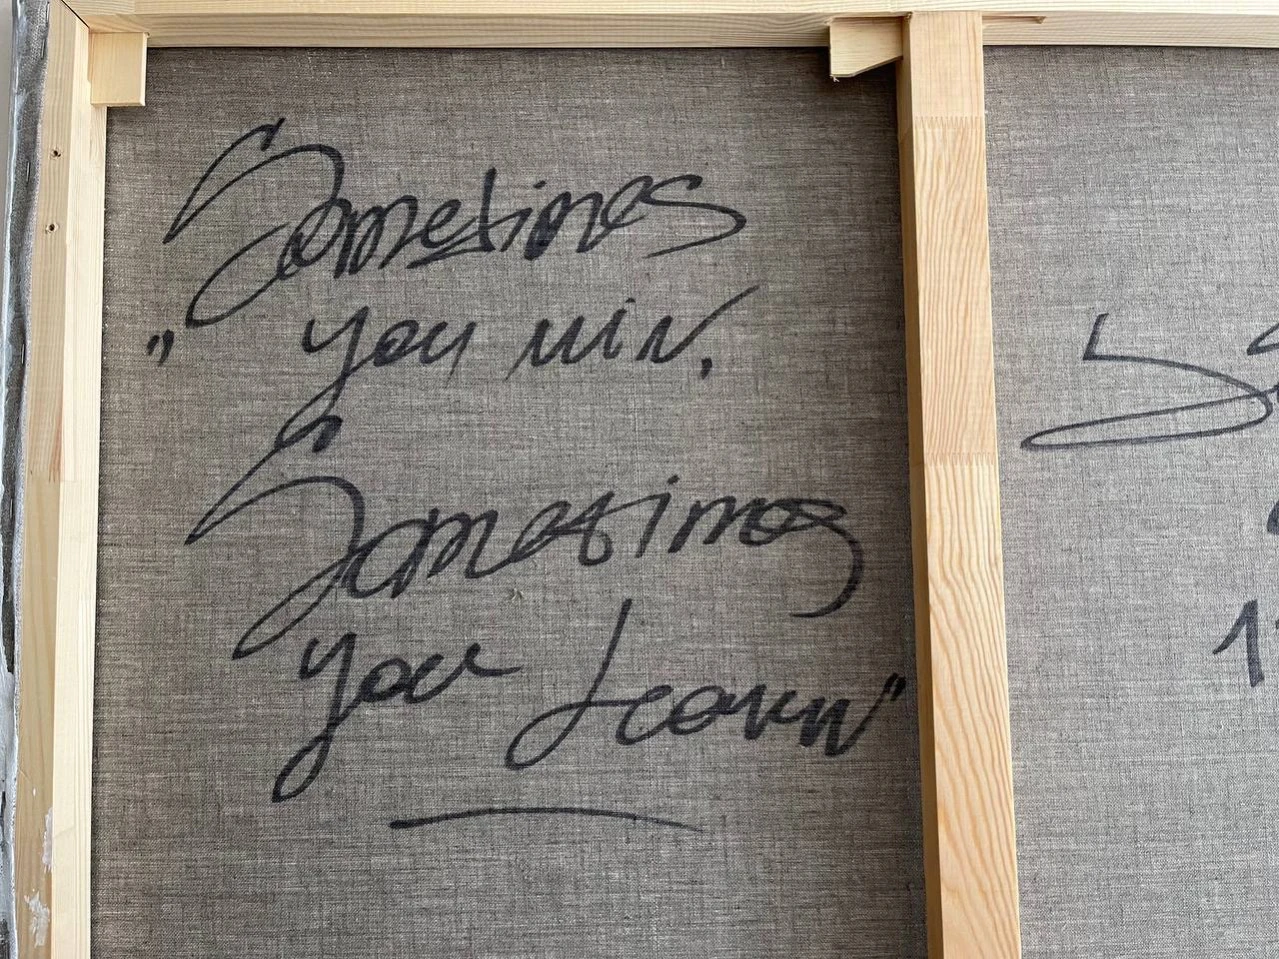 „Sometimes
you win.
Sometimes
you Learn"